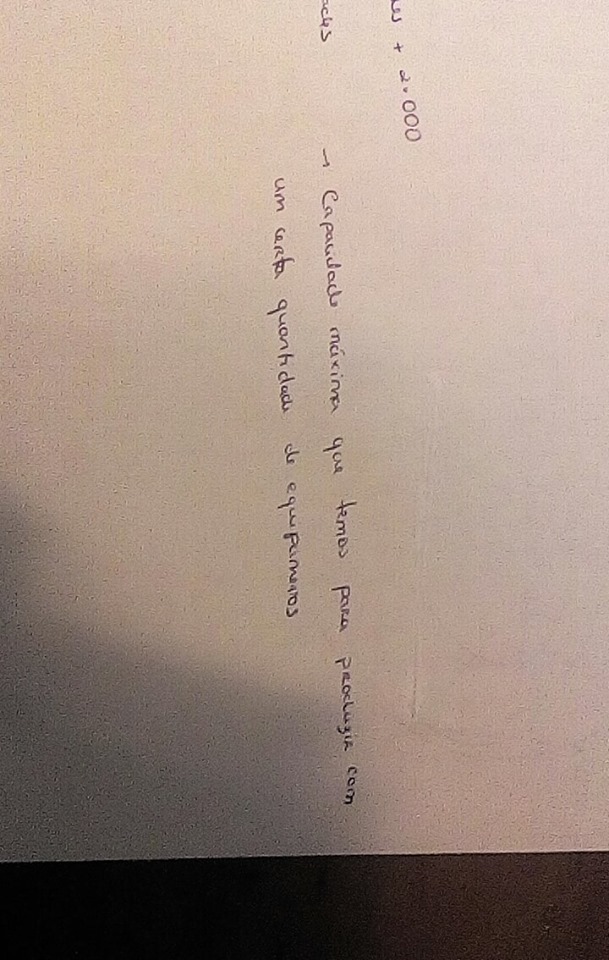 + 2.000
→ Capacidade máxima que temos para produzir com
um certa quantidade de equipamentos